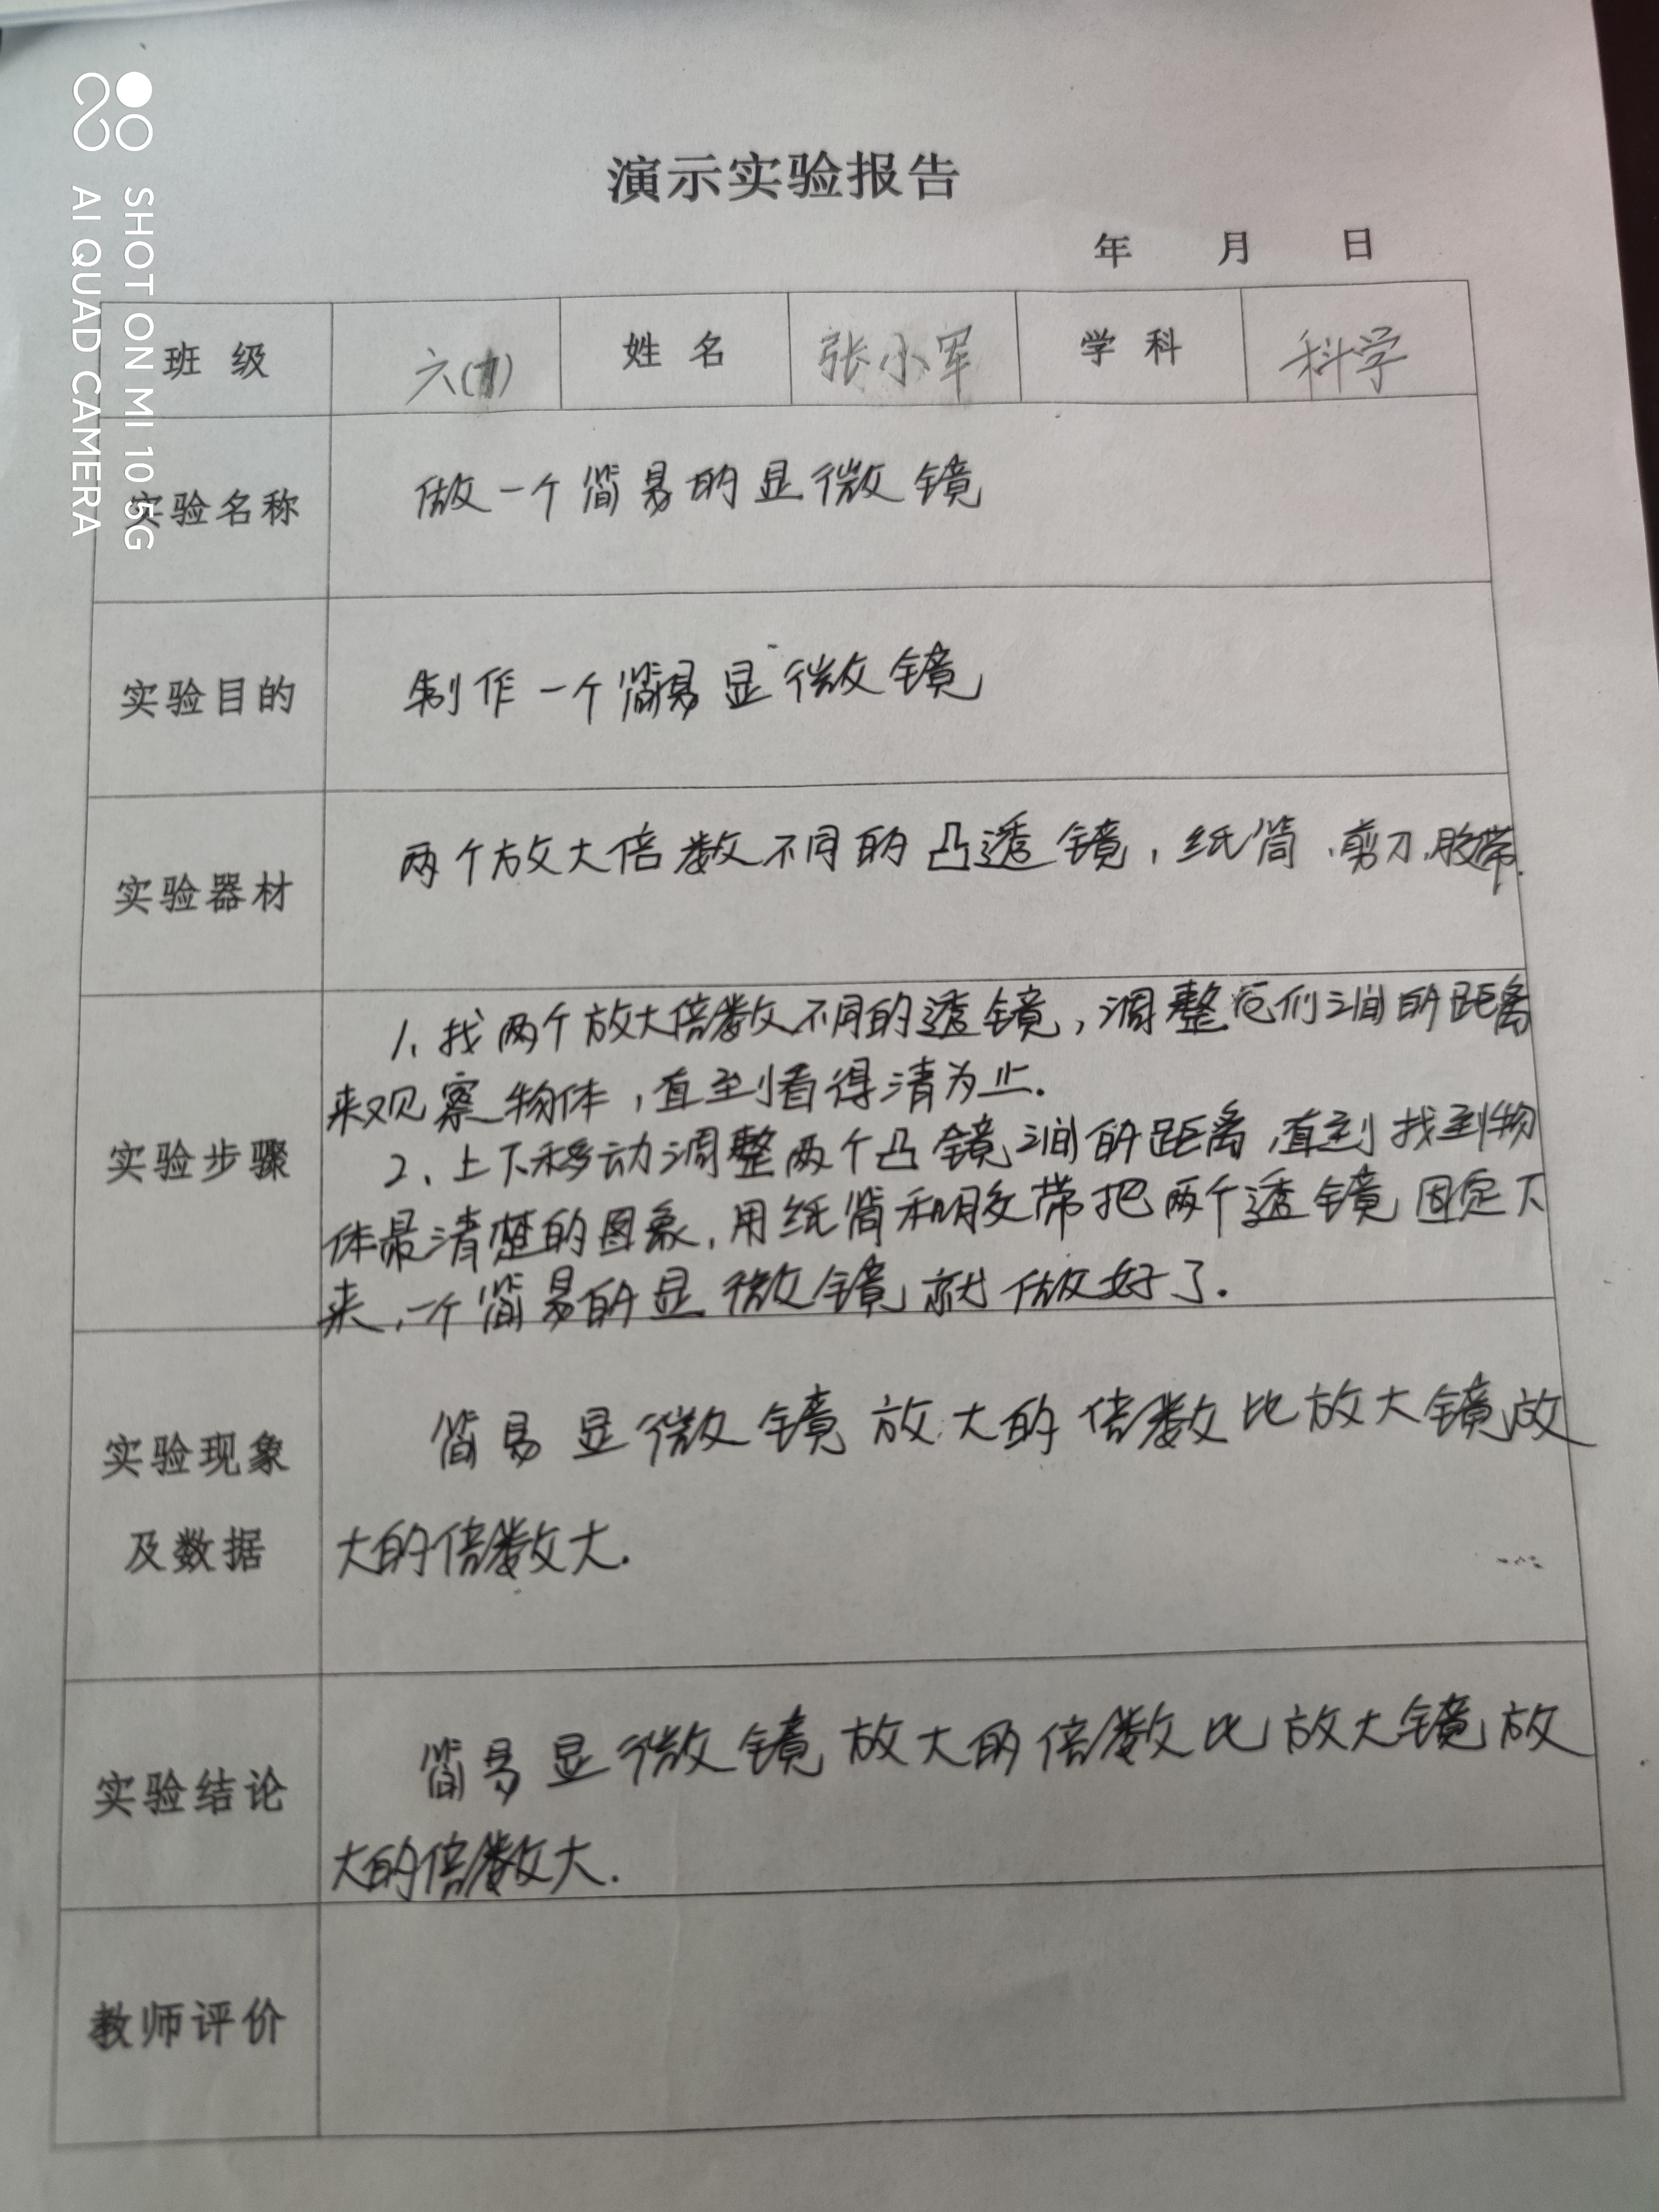 SHOT ON MI 10 5G
AI QUAD CAMERA
演示实验报告
年 月 日
班 级 六( ) 姓 名 张小军 学 科 科学
实验名称 做一个简易的显微镜
实验目的 制作一个简易显微镜
实验器材 两个放大倍数不同的凸透镜，纸筒、剪刀、胶带.
1、找两个放大倍数不同的透镜，调整它们之间的距离
来观察物体，直到看得清为止.
实验步骤 2、上下移动调整两个凸镜之间的距离，直到找到物
体最清楚的图象，用纸筒和胶带把两个透镜固定下
来，一个简易的显微镜就做好了.
实验现象 简易显微镜放大的倍数比放大镜放
及数据 大的倍数大.
实验结论 简易显微镜放大的倍数比放大镜放
大的倍数大.
教师评价